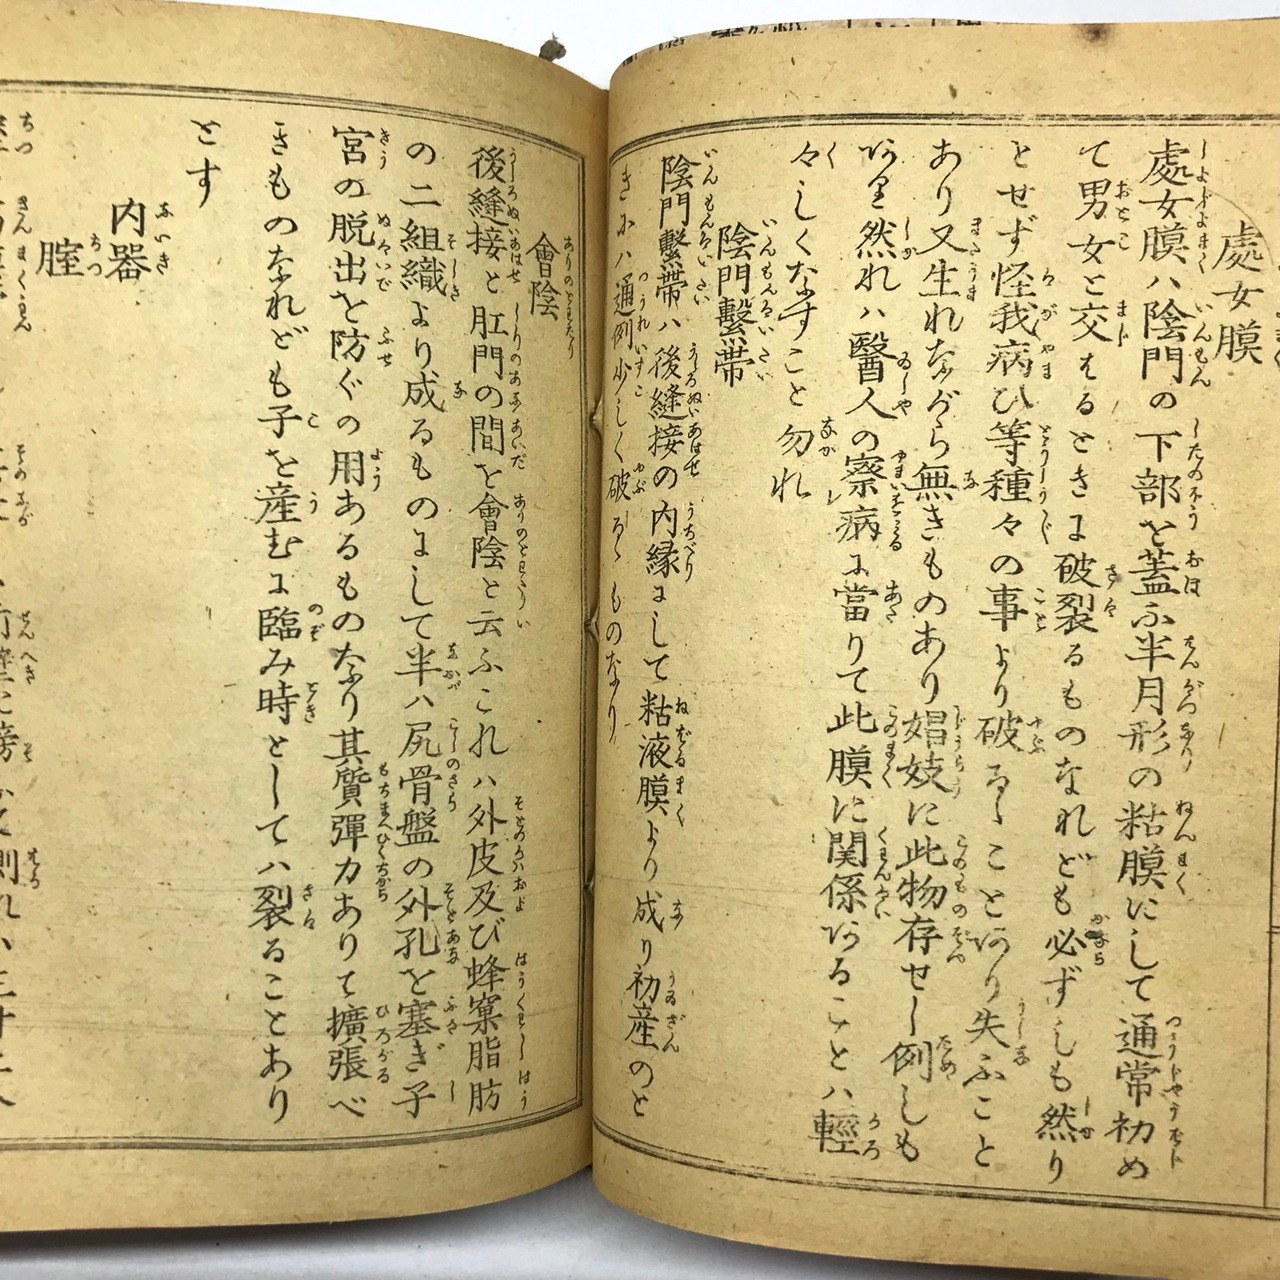 處女膜
處女膜ハ陰門の下部を蓋ふ半月形の粘膜にして通常初め
て男女と交はるときに破裂るものなれども必ずしも然り
とせず怪我病ひ等種々の事より破るゝことあり失ふこと
あり又生れながら無きものあり娼妓に此物存せし例しも
あり然れハ醫人の察病に當りて此膜に関係あることハ輕
々しくなすこと勿れ
陰門繫帶
陰門繫帶ハ後縫接の内縁にして粘液膜より成り初産のと
きにハ通例少しく破るゝものなり
會陰
後縫接と肛門の間を會陰と云ふこれハ外皮及び蜂窠脂肪
の二組織より成るものにして半ハ尻骨盤の外孔を塞ぎ子
宮の脱出を防ぐの用あるものなり其質彈力ありて擴張べ
きものなれども子を産むに臨み時としてハ裂ることあり
とす
内器
腟